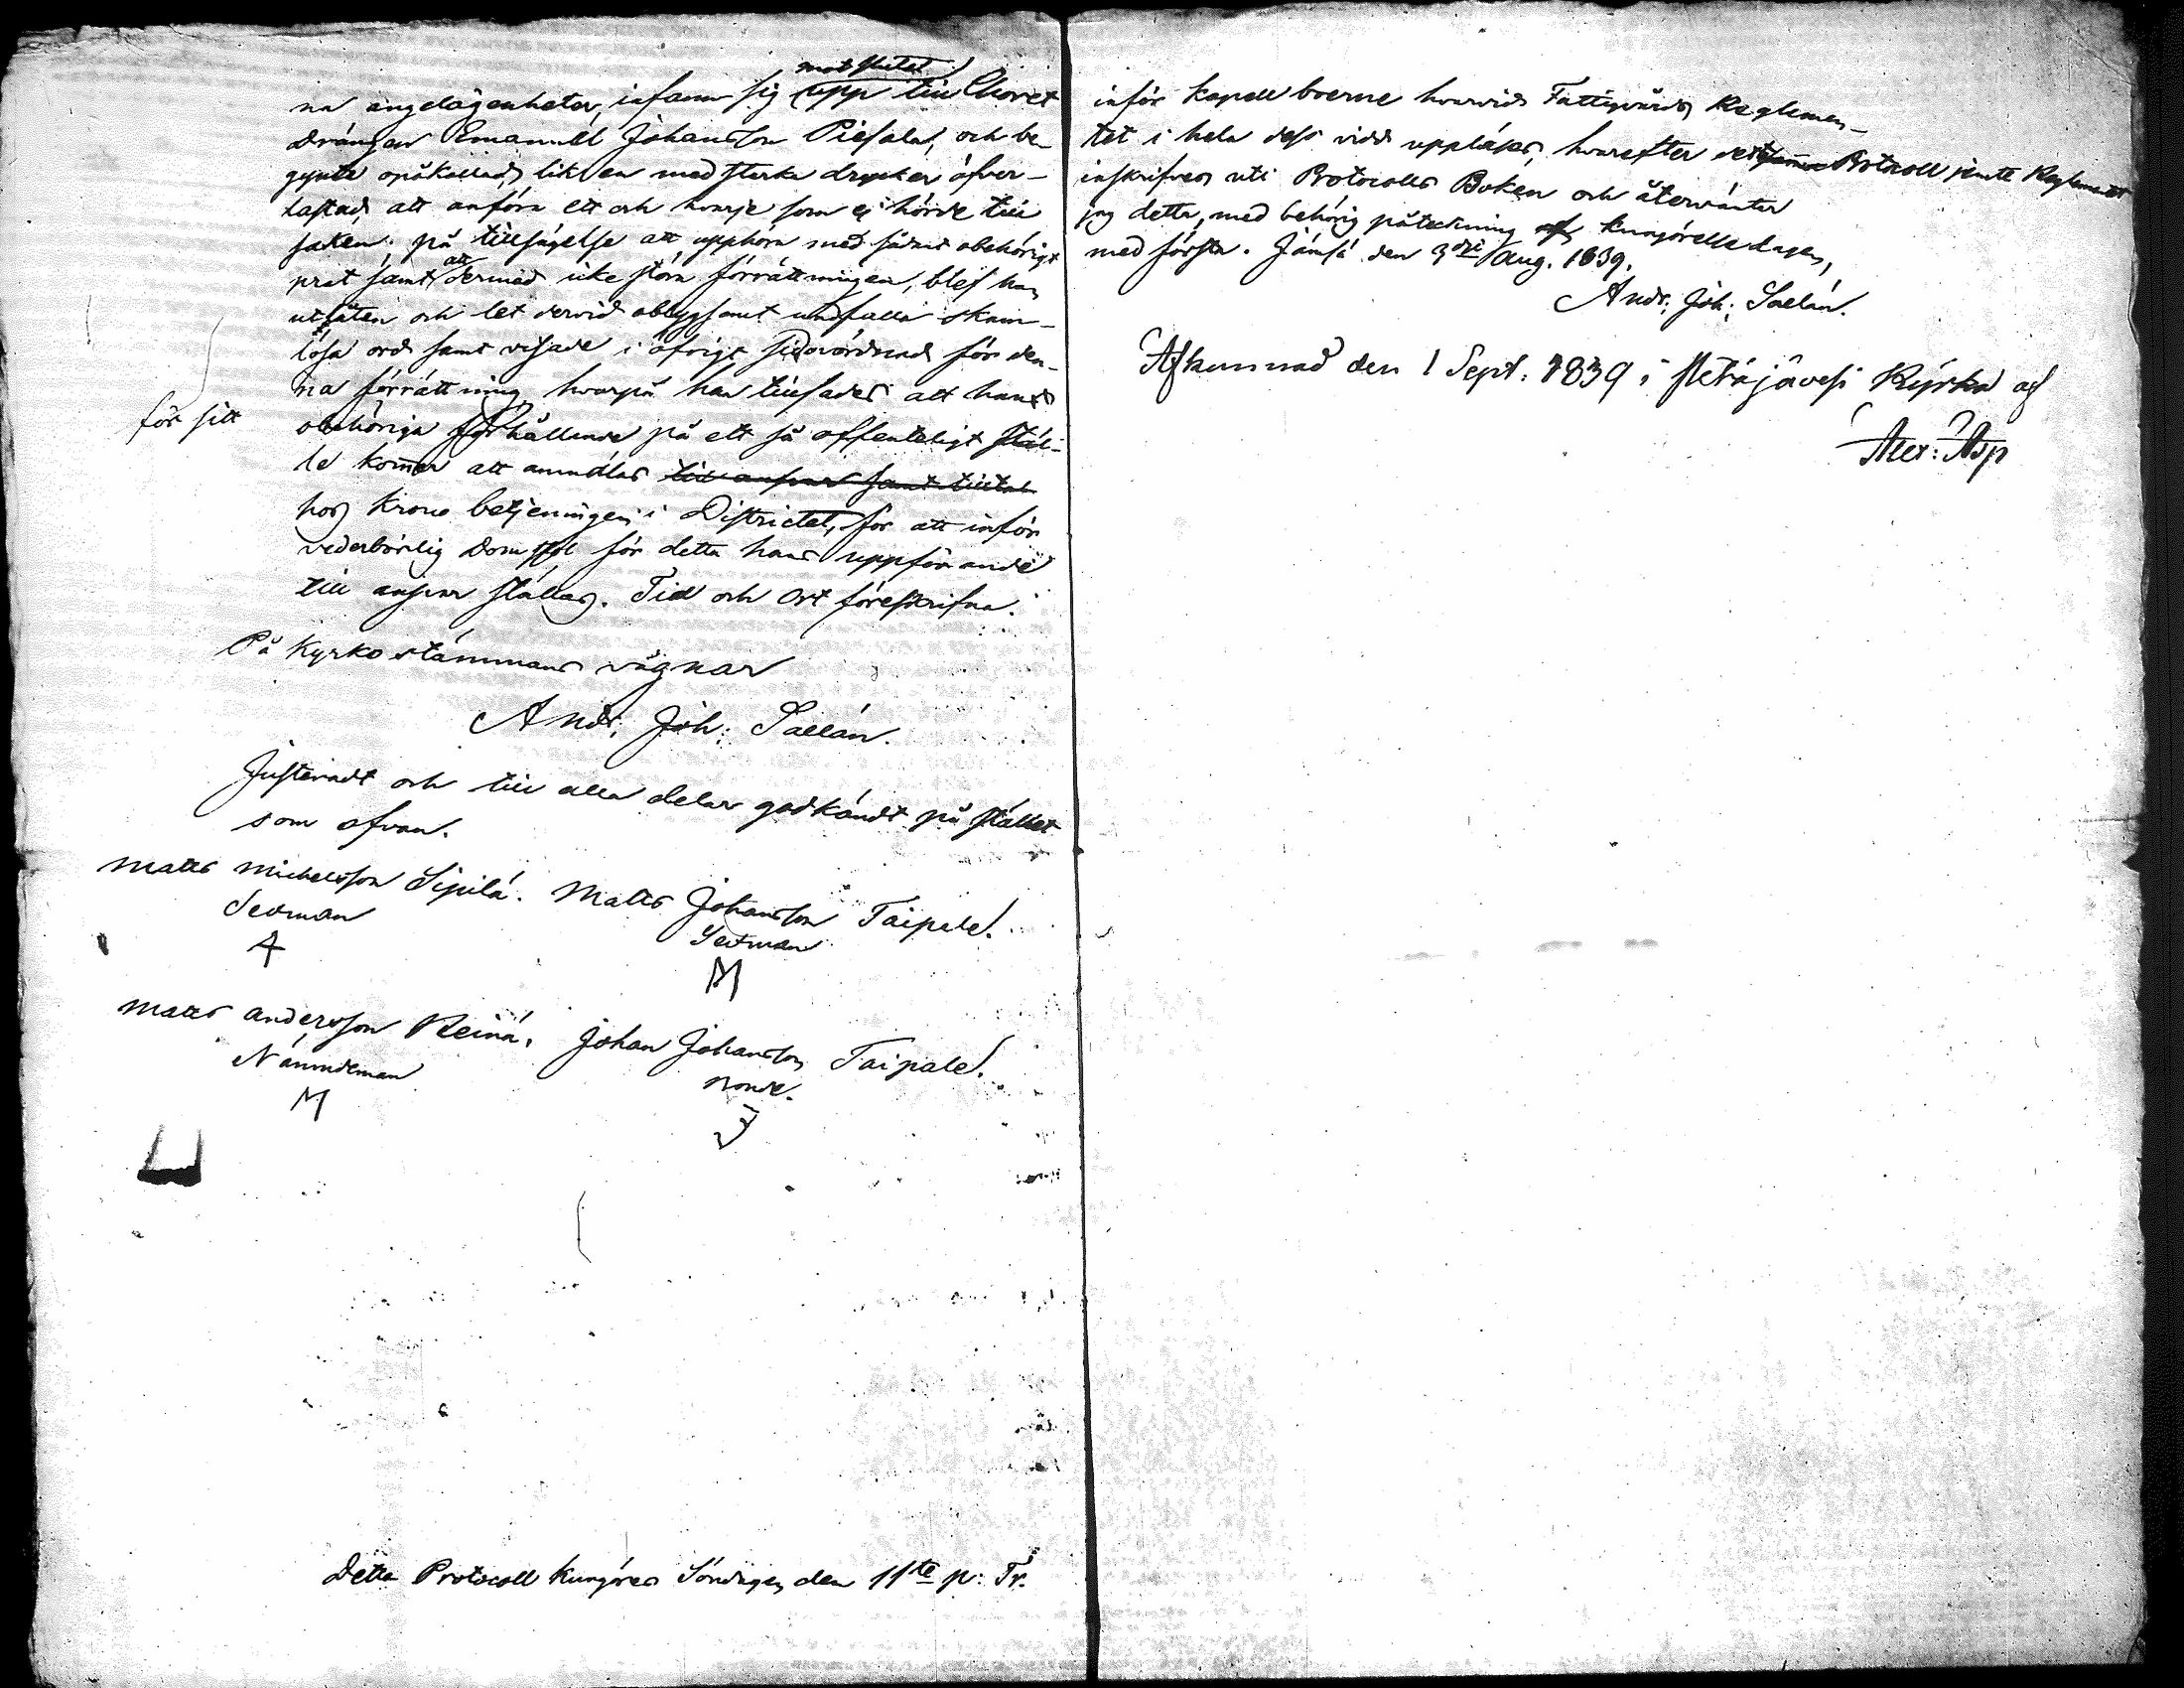 mot slutet
na angelägenheter, infann sig upp till Choret
drängen Emanuel Johansson Piesala, och be-
gynte opåkallad, lik en med starka drycker öfver-
lastad, att anföra ett och hvarje som ej hörde till
saken. på tillsägelse att upphöra med sådant obehörigt
prat samt att dermed icke störa förrättningen, blef han
utfäten och let dervid oblygsamt undfalla skam-
lösa ord samt visade i öfrigt sidovördnad för den-
na förrättning, hvarpå han tillsades att hans
för sitt
obehöriga förhållande på ett så offenteligt stäl-
le kom̅er att anmälas till ansvar samt tilltal
hos Krono betjeningen i Districtet, för att inför
vederbörlig Domstol för detta hans uppförande
till ansvar ställas. Tid och Ort föreskrifna.
På Kyrkostämmans vägnar
Andr. Joh: Sallén.
Justeradt och till alla delar godkändt på stället
som ofvan.
Matts Michelsson Sipilä. Matts Johansson Taipale.
Sexman Sexman
A M
Matts Andersson Reinä, Johan Johansson Taipale.
Nämndeman Bonde.
M J
Detta Protocoll kungöres Söndagen den 11te p: Tr.
inför Kapellboerne hvarvid Fattigvårds Reglemen-
tet i hela dess vidd uppläses, hvarefter Protocoll jemte Reglementet
inskrifves uti Protocolls Boken och återväntar
jag detta, med behörig påteckning af kungörelsedagen,
med första. Jämsä den 3die Aug. 1839.
Andr: Joh: Sallén.
Afkunnad den 1 Sept: 1839 i Petäjävesi Kyrka af
Alex: Asp